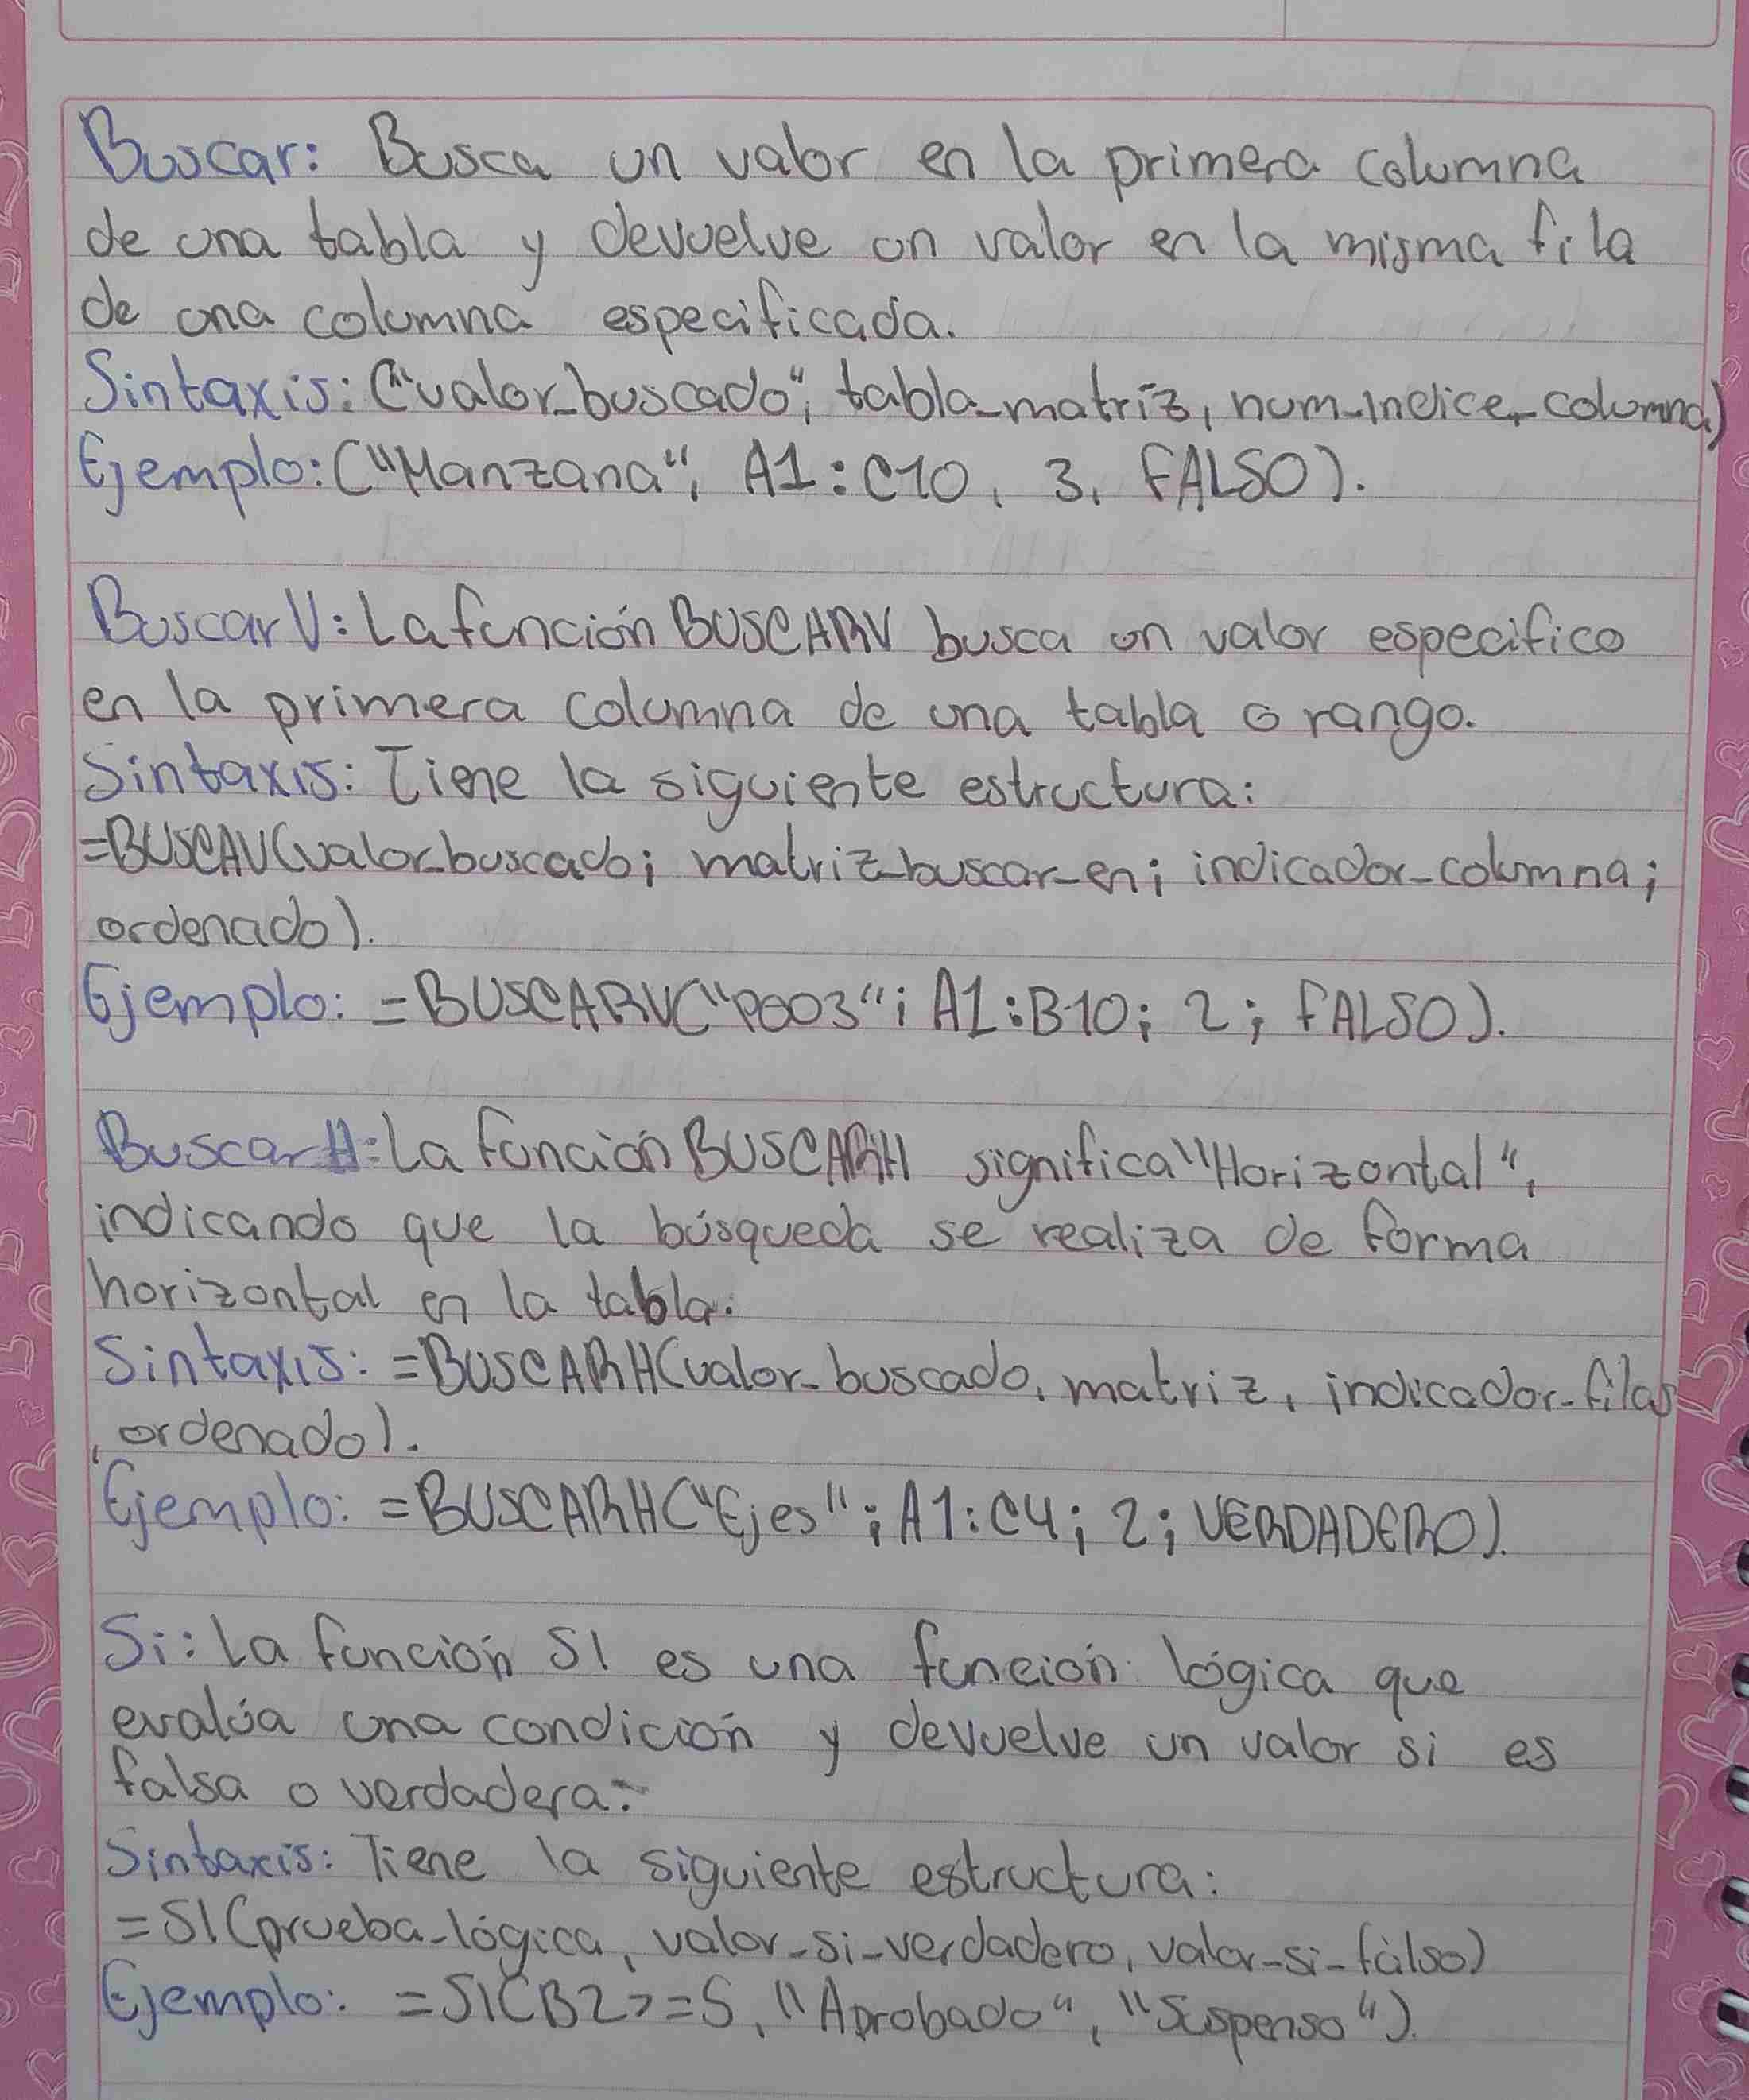 Buscar: Busca un valor en la primera columna
de una tabla y devuelve un valor en la misma fila
de una columna especificada.
Sintaxis: ("valor_buscado", tabla_matriz, num_indice_columna)
Ejemplo: ("Manzana", A1:C10, 3, FALSO).
Buscar V: La función BUSCARV busca un valor especifico
en la primera columna de una tabla o rango.
Sintaxis: Tiene la siguiente estructura:
=BUSCAV(valor_buscado; matriz_buscar_en; indicador_columna;
ordenado).
Ejemplo: =BUSCARV("P003"; A1:B10; 2; FALSO).
Buscar H: La función BUSCARH significa "Horizontal",
indicando que la búsqueda se realiza de forma
horizontal en la tabla.
Sintaxis: =BUSCARH(valor_buscado, matriz, indicador_filas
, ordenado).
Ejemplo: =BUSCARH("Ejes"; A1:C4; 2; VERDADERO).
Si: La función SI es una función lógica que
evalúa una condición y devuelve un valor si es
falsa o verdadera.
Sintaxis: Tiene la siguiente estructura:
=SI(prueba_lógica, valor_si_verdadero, valor_si_falso)
Ejemplo: =SI(B2>=5, "Aprobado", "Suspenso").